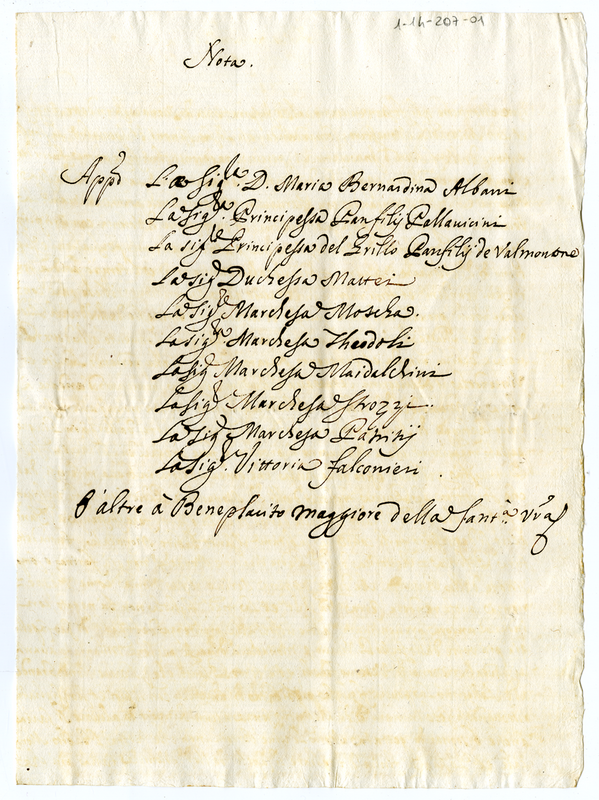 1-14-207-01
Nota.
App.o La Sig.ra D. Maria Bernardina Albani
La Sig.ra Principessa Panfilij Pallavicini
La Sig.ra Principessa del Grillo Panfilij de Valmontone
La Sig.ra Duchessa Mattei
La Sig.ra Marchesa Moscha.
La Sig.ra Marchesa Theodoli
La Sig.ra Marchesa Maidalchini
La Sig.ra Marchesa Strozzi.
La Sig.ra Marchesa Patritij
La Sig.ra Vittoria Falconieri
ò altre à Beneplacito maggiore della Sant.à Vr̃a